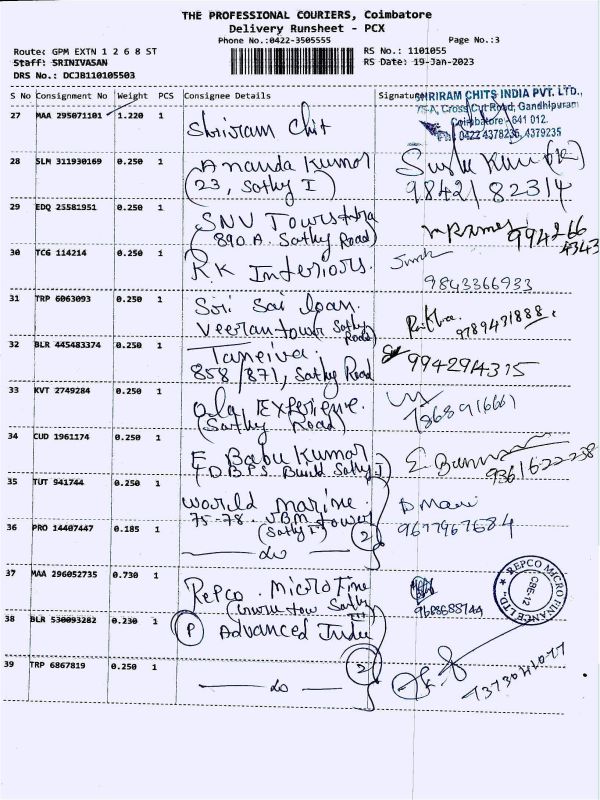 THE PROFESSIONAL COURIERS, Coimbatore
Delivery Runsheet - PCX
Phone No.:0422-3505555
Page No.:3
Route: GPM EXTN 1 2 6 8 ST
RS No.: 1101055
Staff: SRINIVASAN
RS Date: 19-Jan-2023
DRS No.: DCJB110105503
S No Consignment No Weight PCS Consignee Details Signature
SHRIRAM CHITS INDIA PVT. LTD.,
75-A, Cross Cut Road, Gandhipuram
Coimbatore - 641 012.
0422 4378236, 4379235
27 MAA 295071101 1.220 1 Shriram Chit
28 SLM 311930169 0.250 1 Ananda Kumar
(23, Sathy I)
984218 2314
29 EDQ 23581951 0.250 1 SNV
(890 A. Sathy Road)
994266
4343
30 TCG 114214 0.250 1 R.K Interiors.
9843366933
31 TRP 6063093 0.250 1 Sri Sai loan.
Veeran tower Sathy Road
9789431888.
32 BLR 445483374 0.250 1
858/871, Sathy Road
994294315
33 KVT 2749284 0.250 1 ola Experience.
(Sathy Road)
7868916661
34 CUD 1961174 0.250 1 E Babu Kumar
9361622238
35 TUT 941744 0.250 1 world marine.
75-78. VBM tower
(Sathy I)
D Mani
9677967684
36 PRO 14407447 0.185 1 do
2
37 MAA 296052735 0.730 1 Repco. Micro Fine
REPCO MICRO FINANCE LTD
CBE-12
38 BLR 530093282 0.230 1 (P) Advanced India
2
39 TRP 6867819 0.250 1 do
7373041077